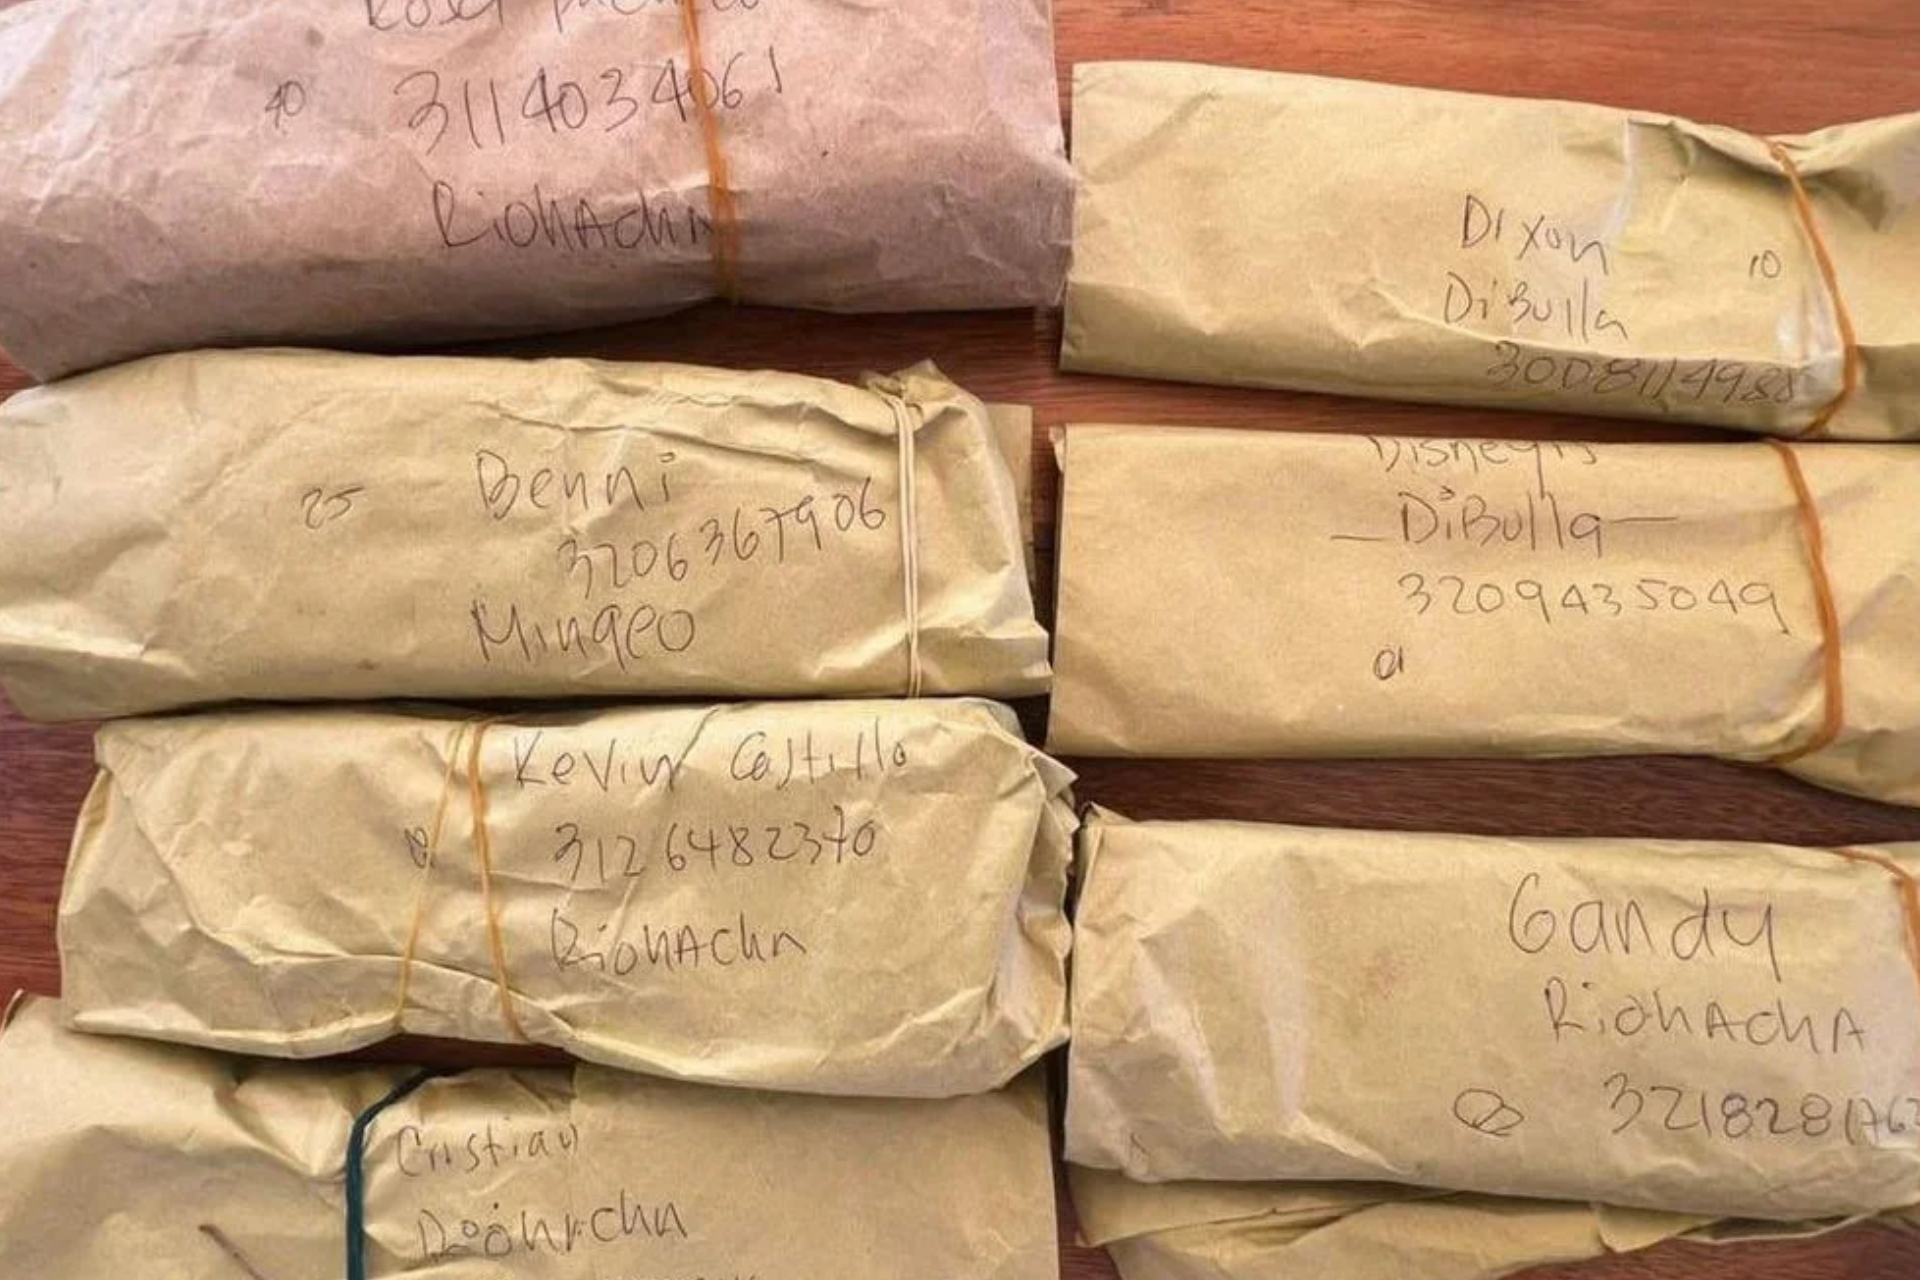 40 3114034061
RiohAchA
Dixon
10
DiBulla
3008114988
25 Benni
3206367906
Mingeo
Disneyis
DiBulla
3209435049
01
Kevin Castillo
3126482370
RiohAcha
Gandy
RiohAchA
Cristian